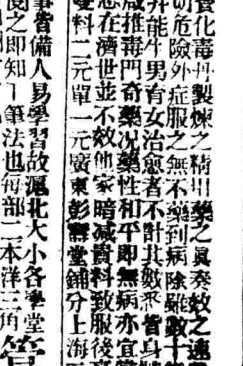 管化毒丹製煉之精川藥之眞奏效之速
切危險外症服之無不藥到病除雖數十
并能生男育女治愈者不計其數釆皆身
咸推毒門奇藥况藥性和平即無病亦宜
志在濟世並不效他家暗减貴料致服後
雙料二元單一元廣東彭壽堂鋪分上海
筆皆備人易學習故滬北大小各學堂
後之即知一筆法也每部二本洋三角